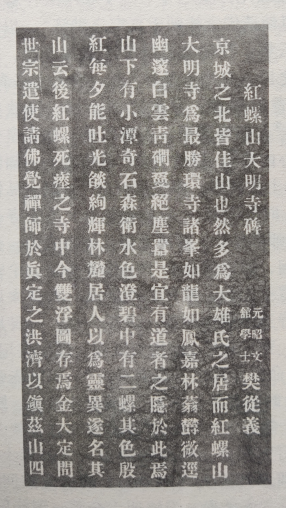 紅螺山大明寺碑
元昭文館學士樊從義
京城之北皆佳山也然多為大雄氏之居而紅螺山
大明寺為最勝環寺諸峯如龍如鳳嘉林蓊欝微逕
幽邃白雲青磵敻絕塵囂是宜有道者之隱於此焉
山下有小潭奇石森衛水色澄碧中有二螺其色殷
紅每夕能吐光燄絢輝林麓居人以為靈異遂名其
山云後紅螺死瘞之寺中今雙浮圖存焉金大定間
世宗遣使請佛覺禪師於真定之洪濟以鎮茲山四